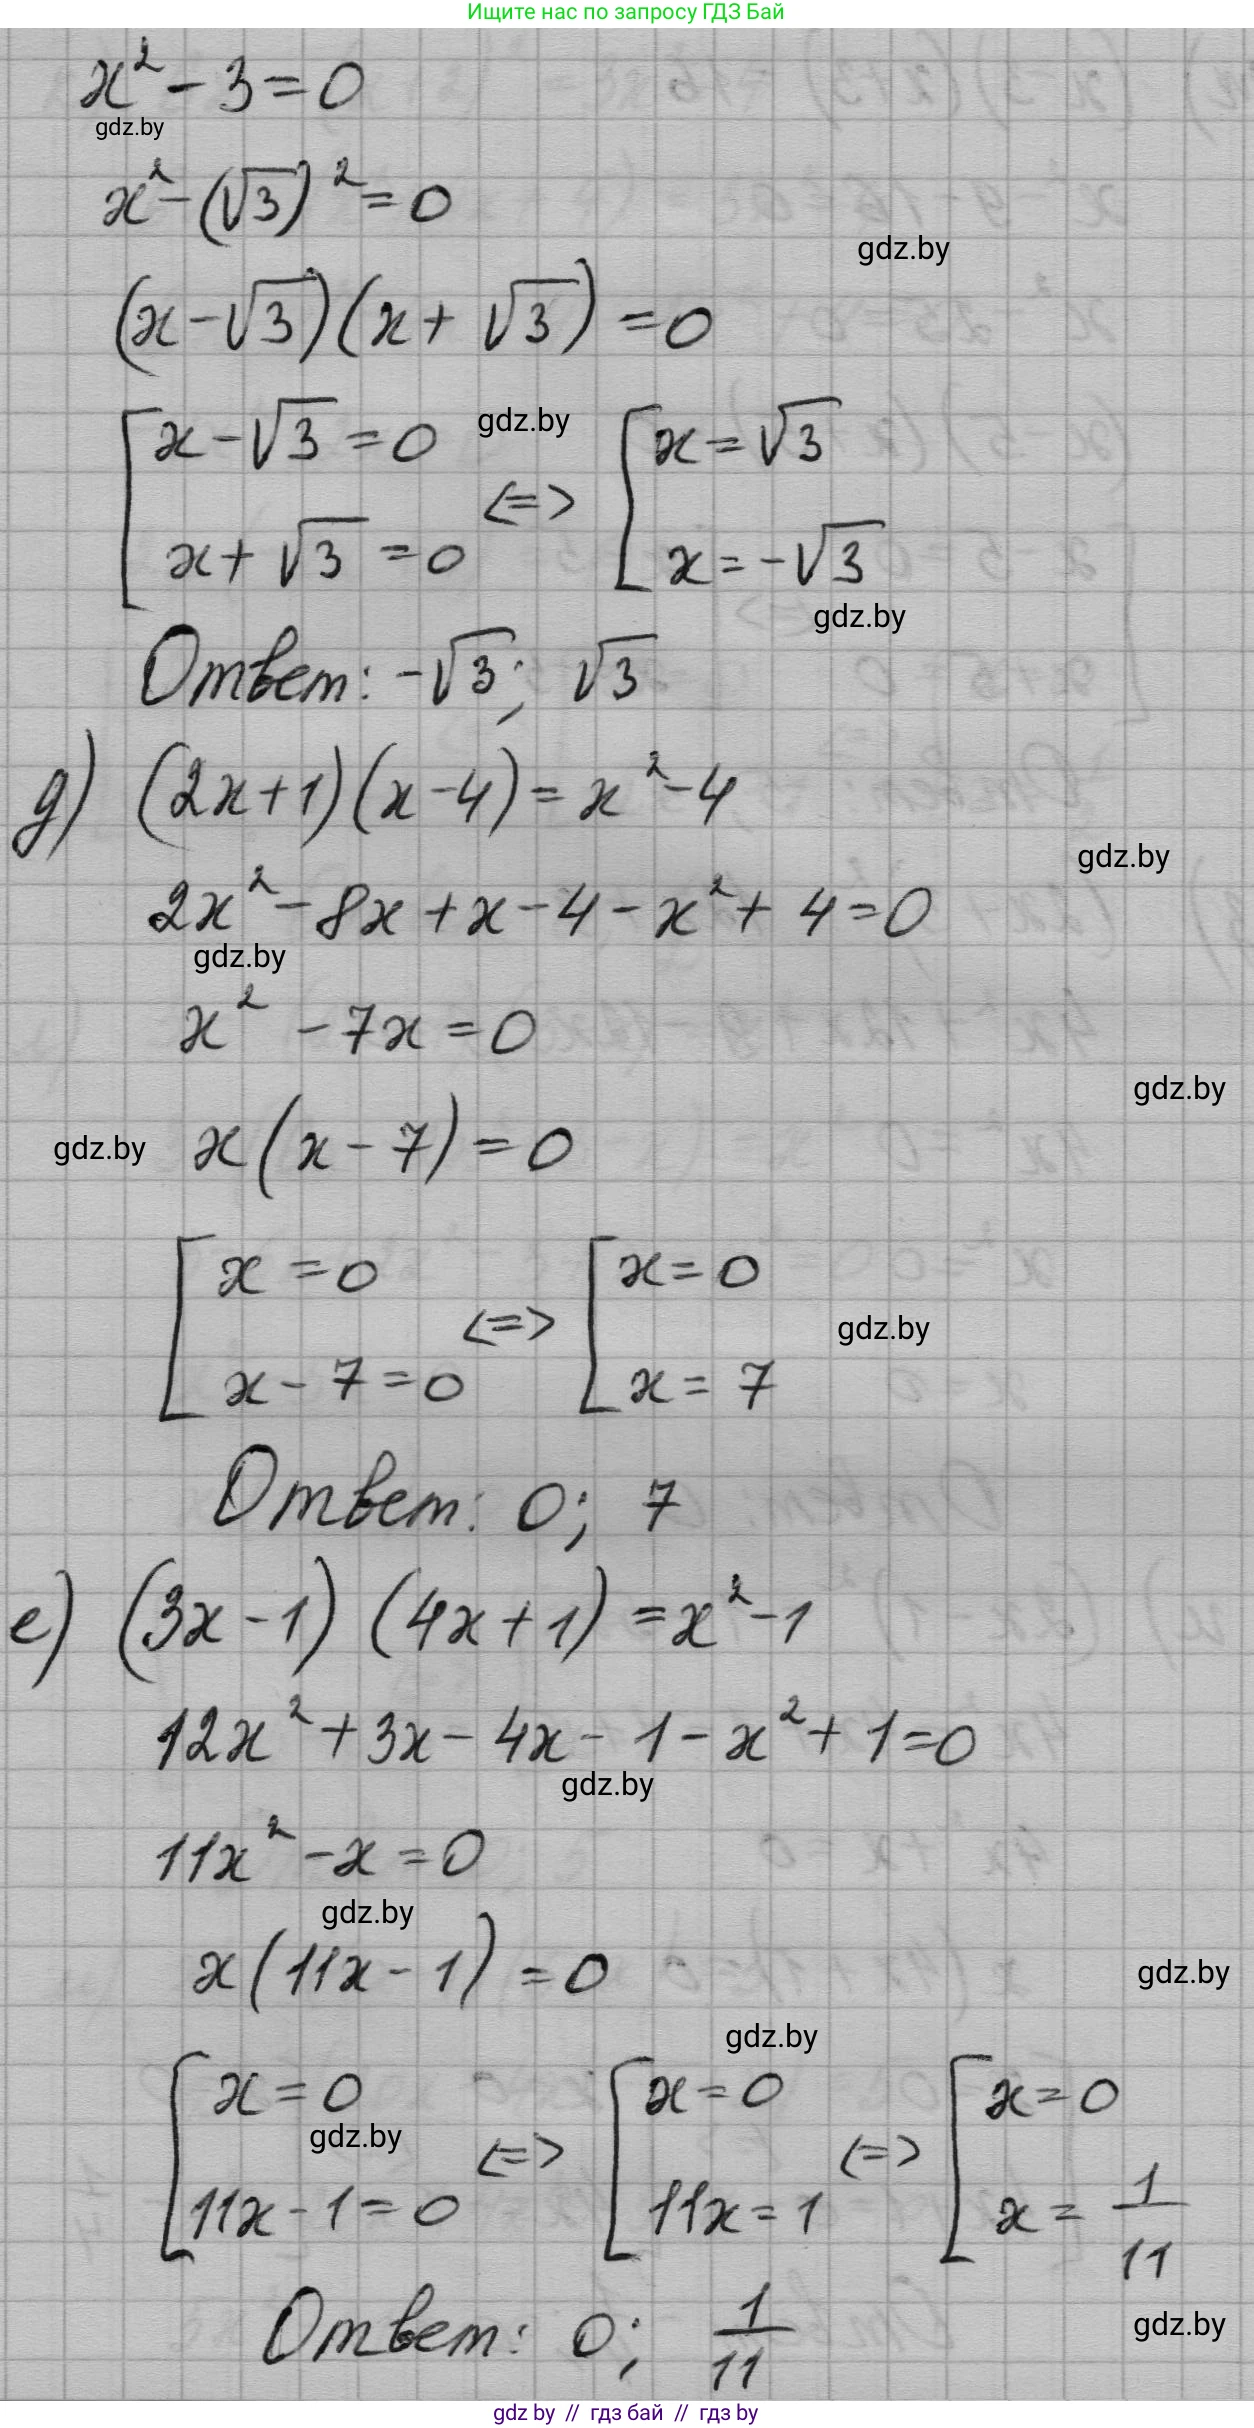 Ищите нас по запросу ГДЗ Бай
x² - 3 = 0
gdz.by
x² - (√3)² = 0
gdz.by
(x - √3)(x + √3) = 0
[ x - √3 = 0 gdz.by [ x = √3
<=>
x + √3 = 0 x = -√3
gdz.by
Ответ: -√3; √3
д) (2x + 1)(x - 4) = x² - 4
gdz.by
2x² - 8x + x - 4 - x² + 4 = 0
gdz.by
x² - 7x = 0
gdz.by
gdz.by x(x - 7) = 0
[ x = 0 [ x = 0
<=> gdz.by
x - 7 = 0 x = 7
Ответ: 0; 7
е) (3x - 1) (4x + 1) = x² - 1
12x² + 3x - 4x - 1 - x² + 1 = 0
gdz.by
11x² - x = 0
gdz.by
x(11x - 1) = 0 gdz.by
gdz.by
[ x = 0 [ x = 0 [ x = 0
gdz.by <=> <=>
11x - 1 = 0 11x = 1 x = 1/11
Ответ: 0; 1/11 gdz.by
gdz by // гдз бай // гдз by